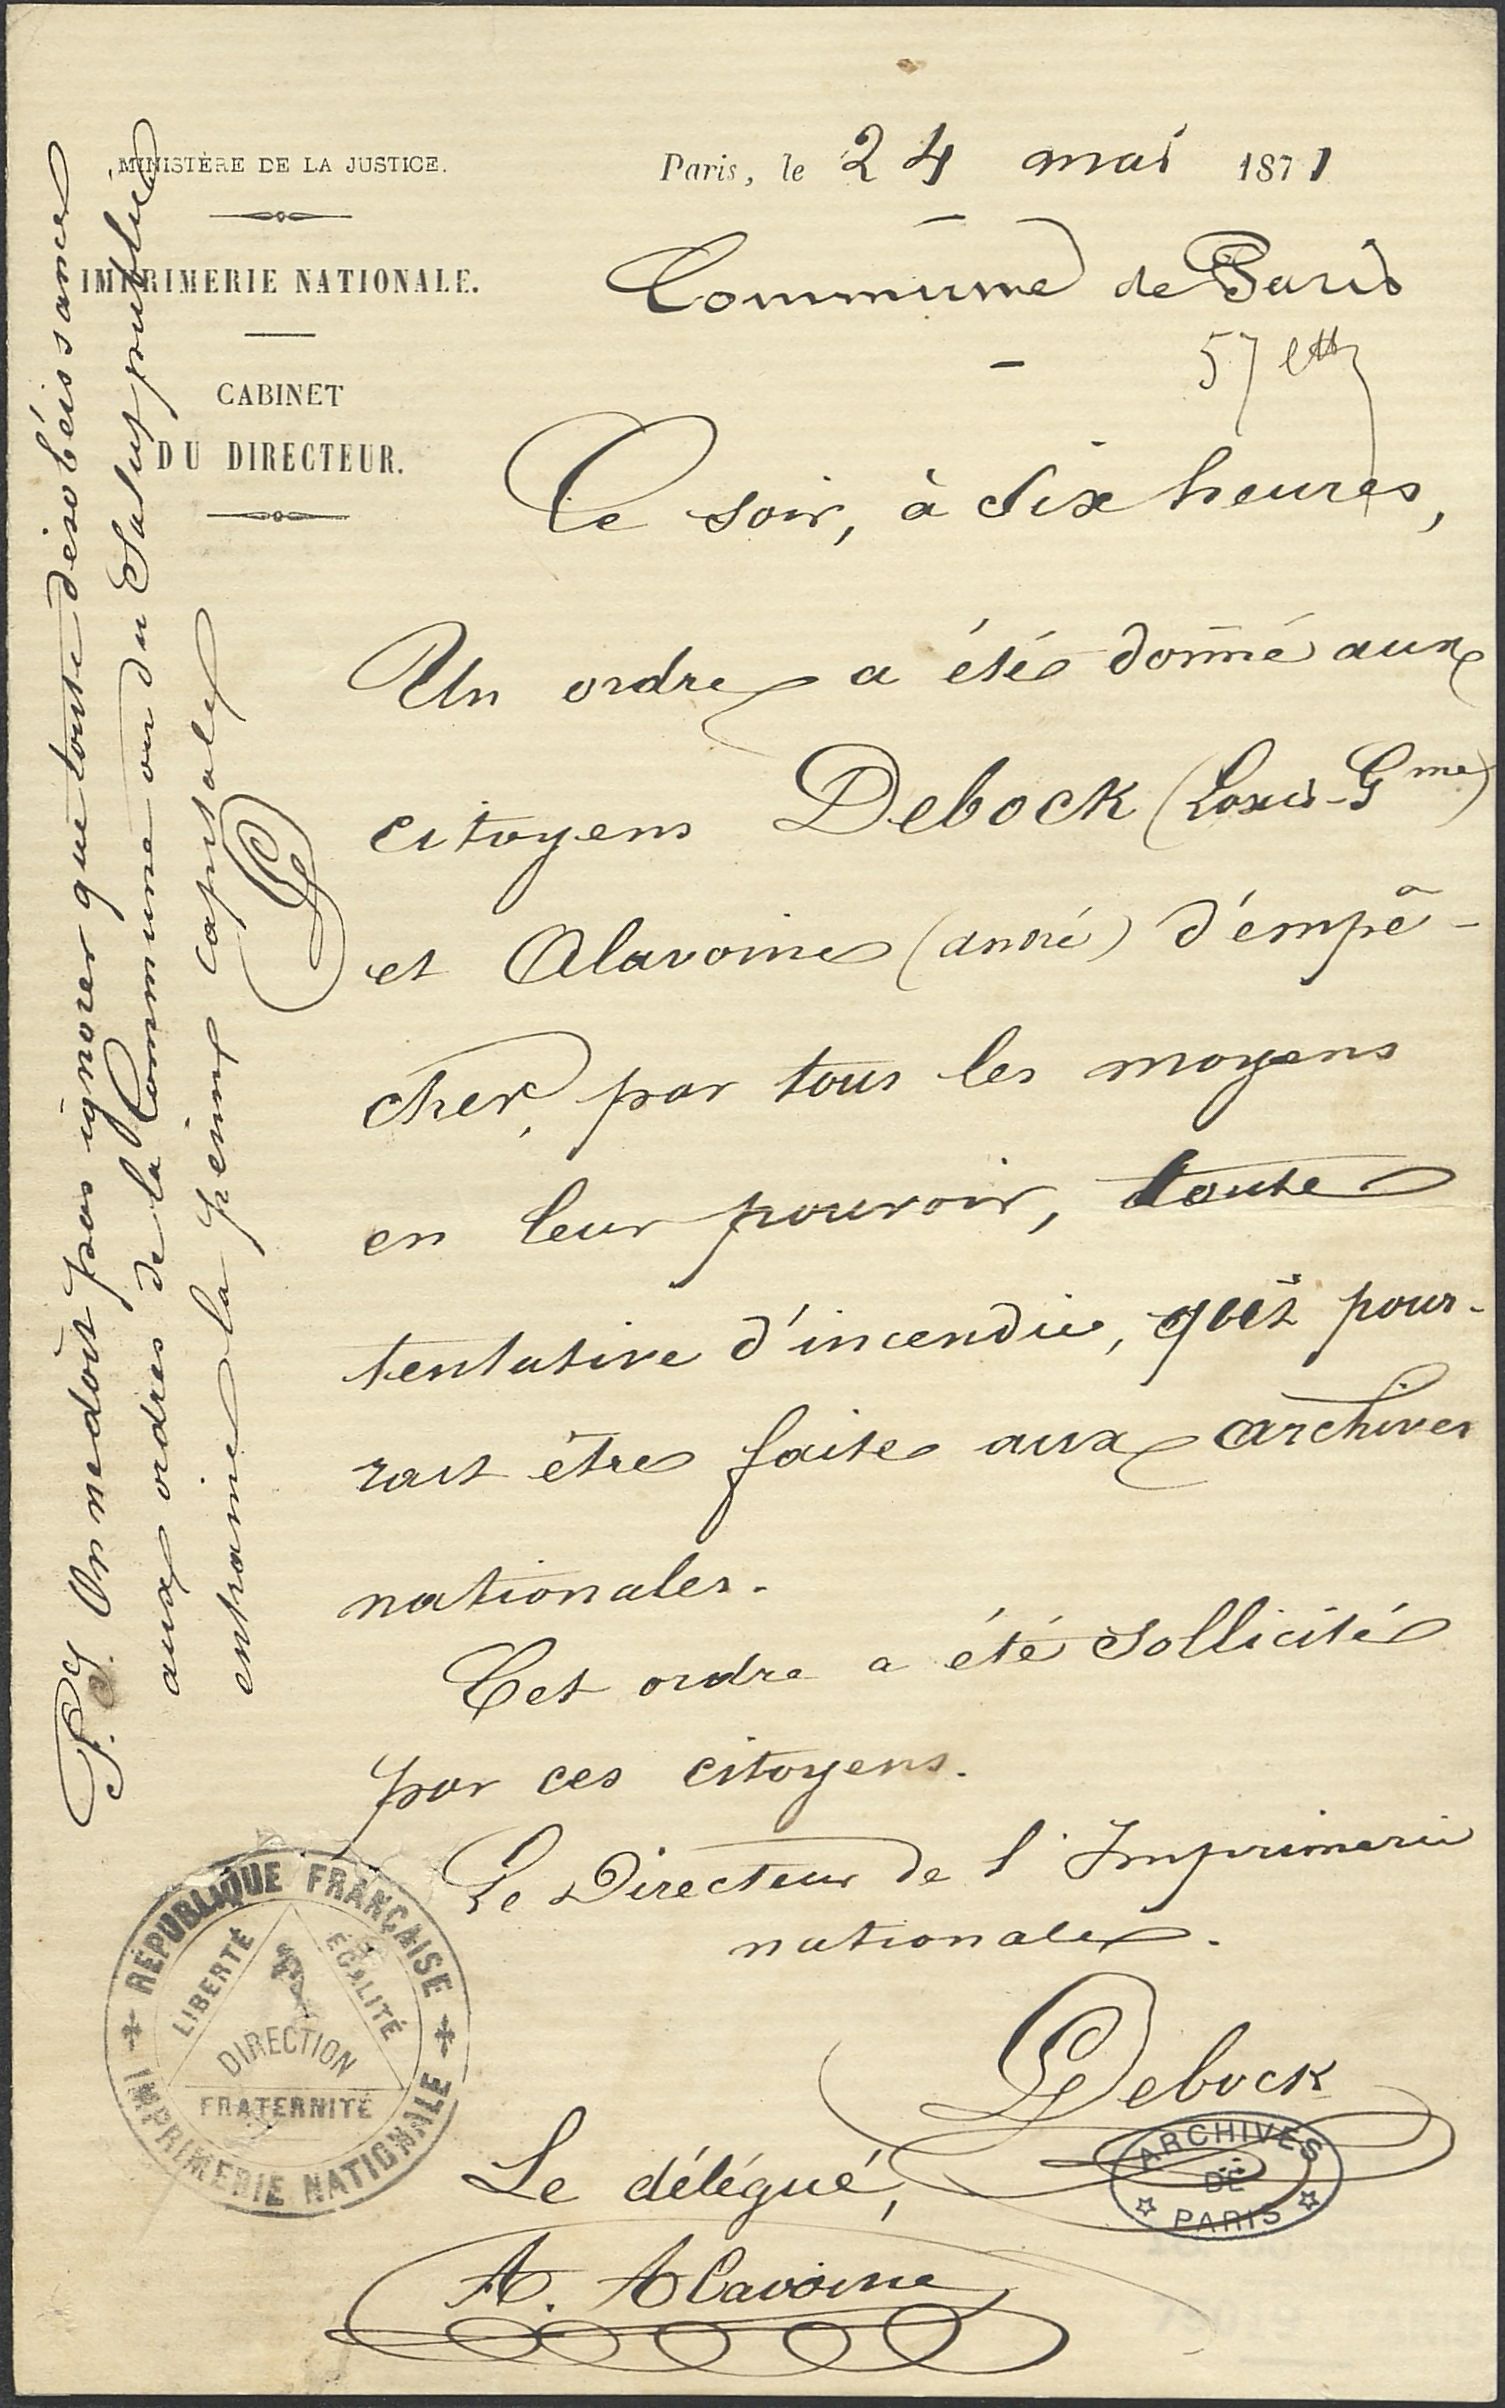 MINISTÈRE DE LA JUSTICE.
IMPRIMERIE NATIONALE.
CABINET
DU DIRECTEUR.
Paris, le 24 mai 1871
Commune de Paris
Ce soir, à Six heures,
Un ordre a été donné aux
citoyens Debock (Louis-Gme)
et Alavoine (andré) d'empê-
cher, par tous les moyens
en leur pouvoir, toute
tentative d'incendie, qui pour-
rait être faite aux archives
nationales.
Cet ordre a été Sollicité
par ces citoyens.
Le Directeur de l'Imprimerie
nationale.
Debock
Le délégué,
A. Alavoine
P.S. On ne doit pas ignorer que toute désobéissance
aux ordres de la Commune ou du Salut public
entraine la peine capitale
RÉPUBLIQUE FRANÇAISE
LIBERTÉ
ÉGALITÉ
DIRECTION
FRATERNITÉ
IMPRIMERIE NATIONALE
ARCHIVES
DE
PARIS